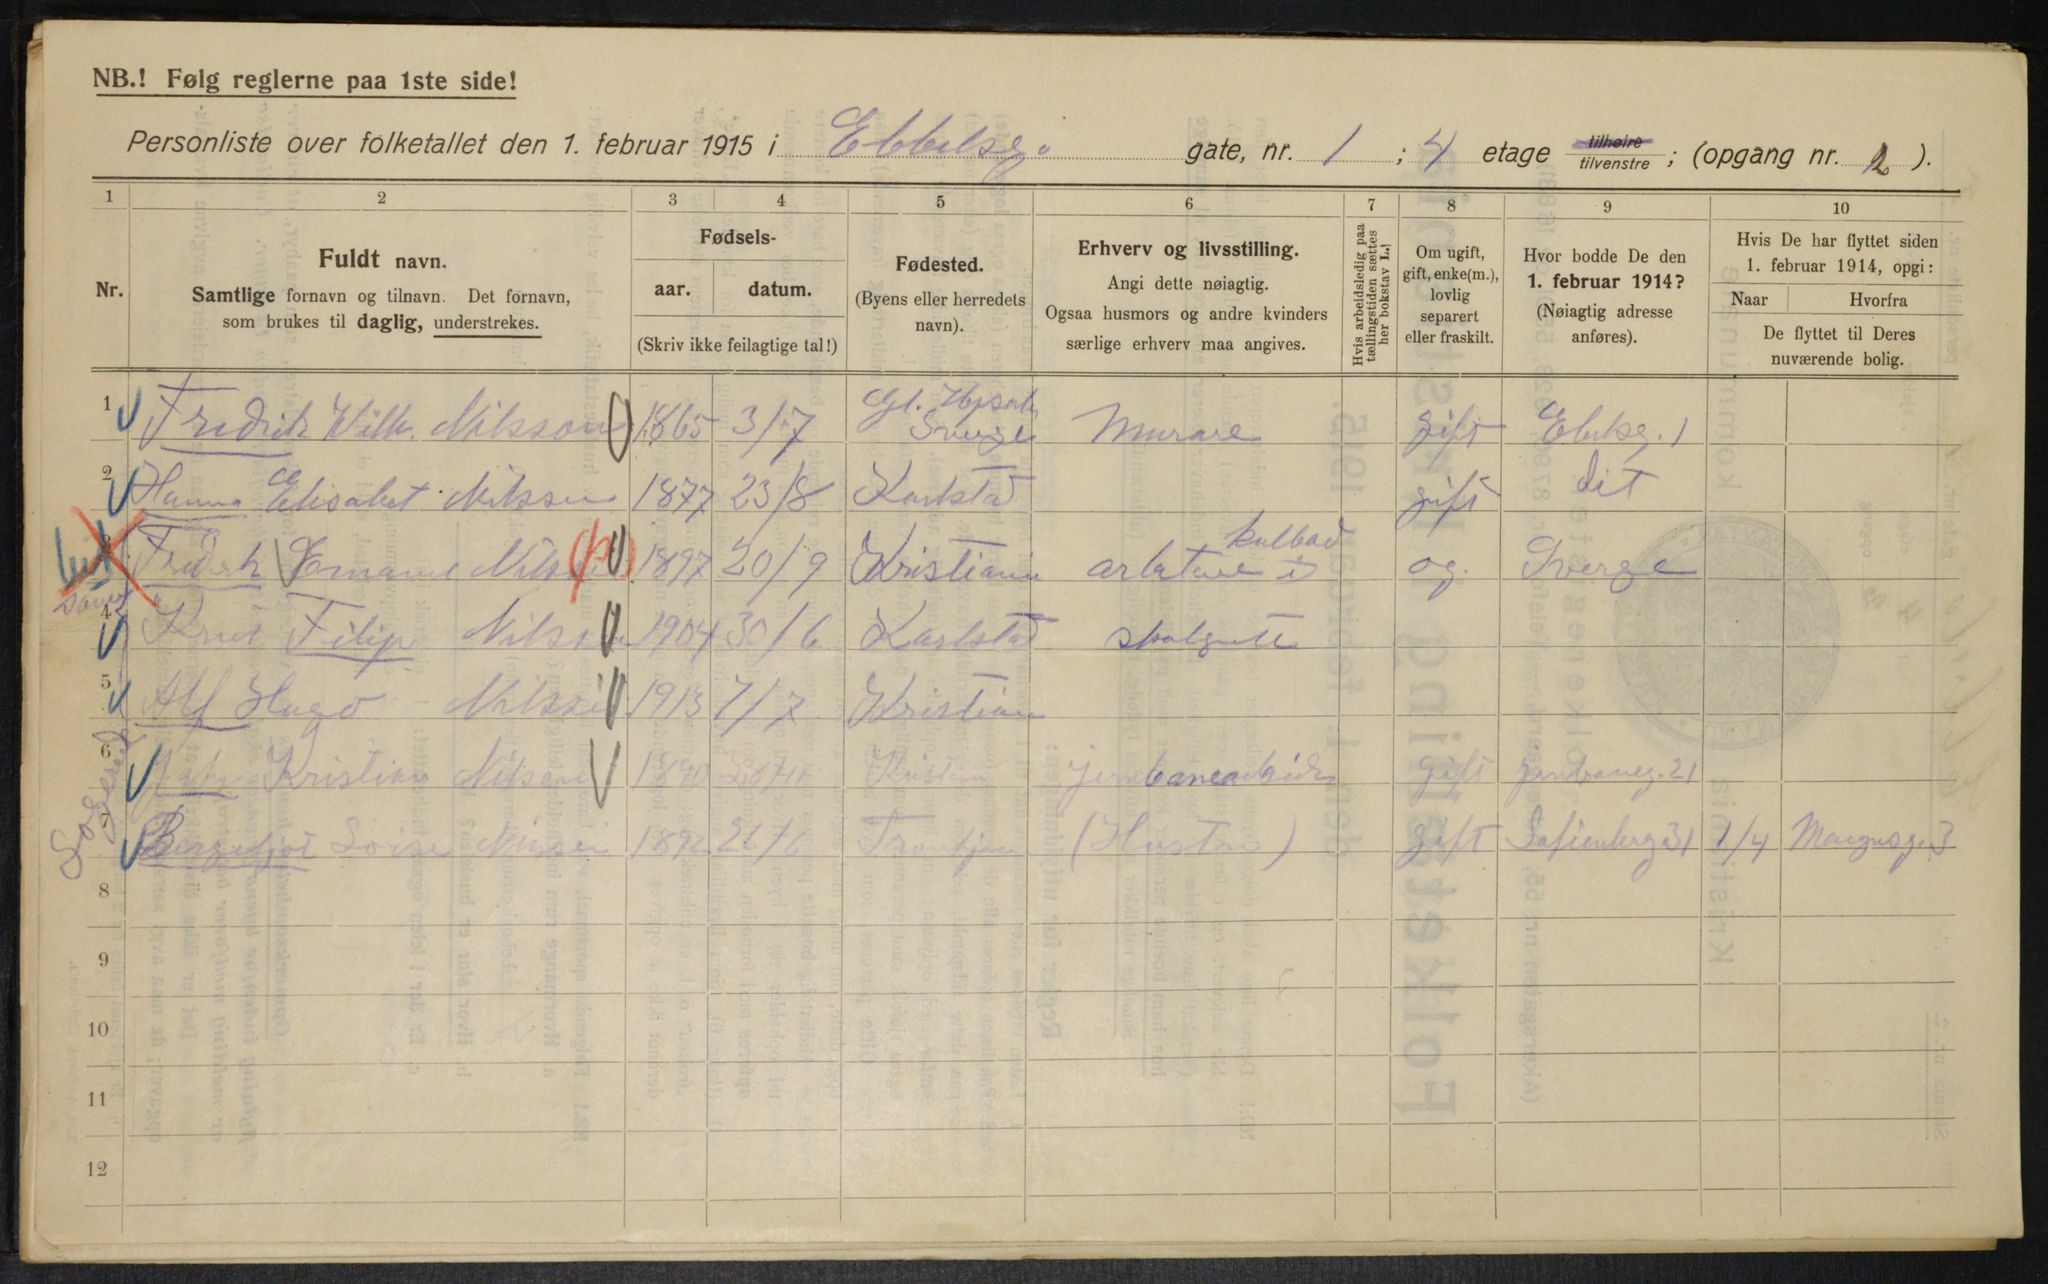 NB.! Følg reglerne paa 1ste side!
Personliste over folketallet den 1. februar 1915 i Ebbelsg. gate, nr. 1 ; 4 etage tilhøire tilvenstre ; (opgang nr. 2 ).
1 2 3 4 5 6 7 8 9 10
Nr.
Fuldt navn.
Samtlige fornavn og tilnavn. Det fornavn,
som brukes til daglig, understrekes.
Fødsels-
aar. datum.
(Skriv ikke feilagtige tal!)
Fødested.
(Byens eller herredets
navn).
Erhverv og livsstilling.
Angi dette nøiagtig.
Ogsaa husmors og andre kvinders
særlige erhverv maa angives.
Hvis arbeidsledig paa
tællingstiden sættes
her bokstav L.!
Om ugift,
gift, enke(m.),
lovlig
separert
eller fraskilt.
Hvor bodde De den
1. februar 1914?
(Nøiagtig adresse
anføres).
Hvis De har flyttet siden
1. februar 1914, opgi:
Naar Hvorfra
De flyttet til Deres
nuværende bolig.
1 Fredrik Wilh. Nilsson 1865 3/7 Gl. Upsala Sverge Murare gift Ebelsg. 1
2 Hanna Elisabet Nilsson 1877 23/8 Karlstad gift dit
3 Fredrik Emanuel Nilsson 1897 20/9 Kristiania arbetare i og. Sverge
4 Knut Filip Nilsson 1904 30/6 Karlstad skolgutt
5 Alf Hugo Nilsson 1913 7/7 Kristiania
6 Kristian Nilsen 1890 gift 21
7 Nilsen 1892 26/6 Trondhjem (Hustru) gift Sofienberg 31 1/4 Mangnusg. 3
8
9
10
11
12
Losjerend